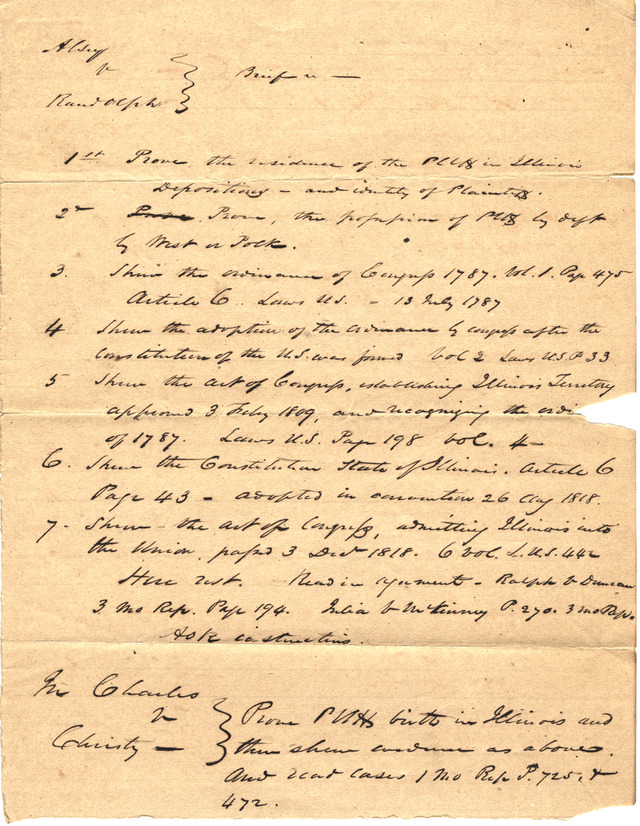 Alsey
v
Randolph } Brief
1st Prove the residence of the Pltff in Illinois
Depositions – and identity of Plaintiff.
2d Prove, the possession of Pltff by deft
by West or Polk.
3. Shew the ordinance of Congress 1787. Vol. 1. Page 475
Article 6. Laws U.S. – 13 July 1787
4 Shew the adoption of the ordinance by congress after the
Constitution of the U.S. was formed Vol 2 Laws U.S. P 33
5 Shew the act of Congress, establishing Illinois Territory
approved 3 Feby 1809, and recognizing the ordi
of 1787. Laws U.S. Page 198 Vol. 4
6. Shew the Constitution State of Illinois. Article 6
Page 43 – adopted in convention 26 Aug 1818.
7. Shew the act of Congress, admitting Illinois into
the Union, passed 3 Decr 1818. 6 Vol. L.U.S. 442
Here rest. Read in argument – Ralph v Duncan
3 Mo Rep. Page 194. Julia v McKinney P. 270. 3 Mo Rep.
Ask instructions.
In Charles
v
Christy } Prove Pltffs birth in Illinois and
then shew evidence as above.
And read cases 1 Mo Rep P. 725, &
472.